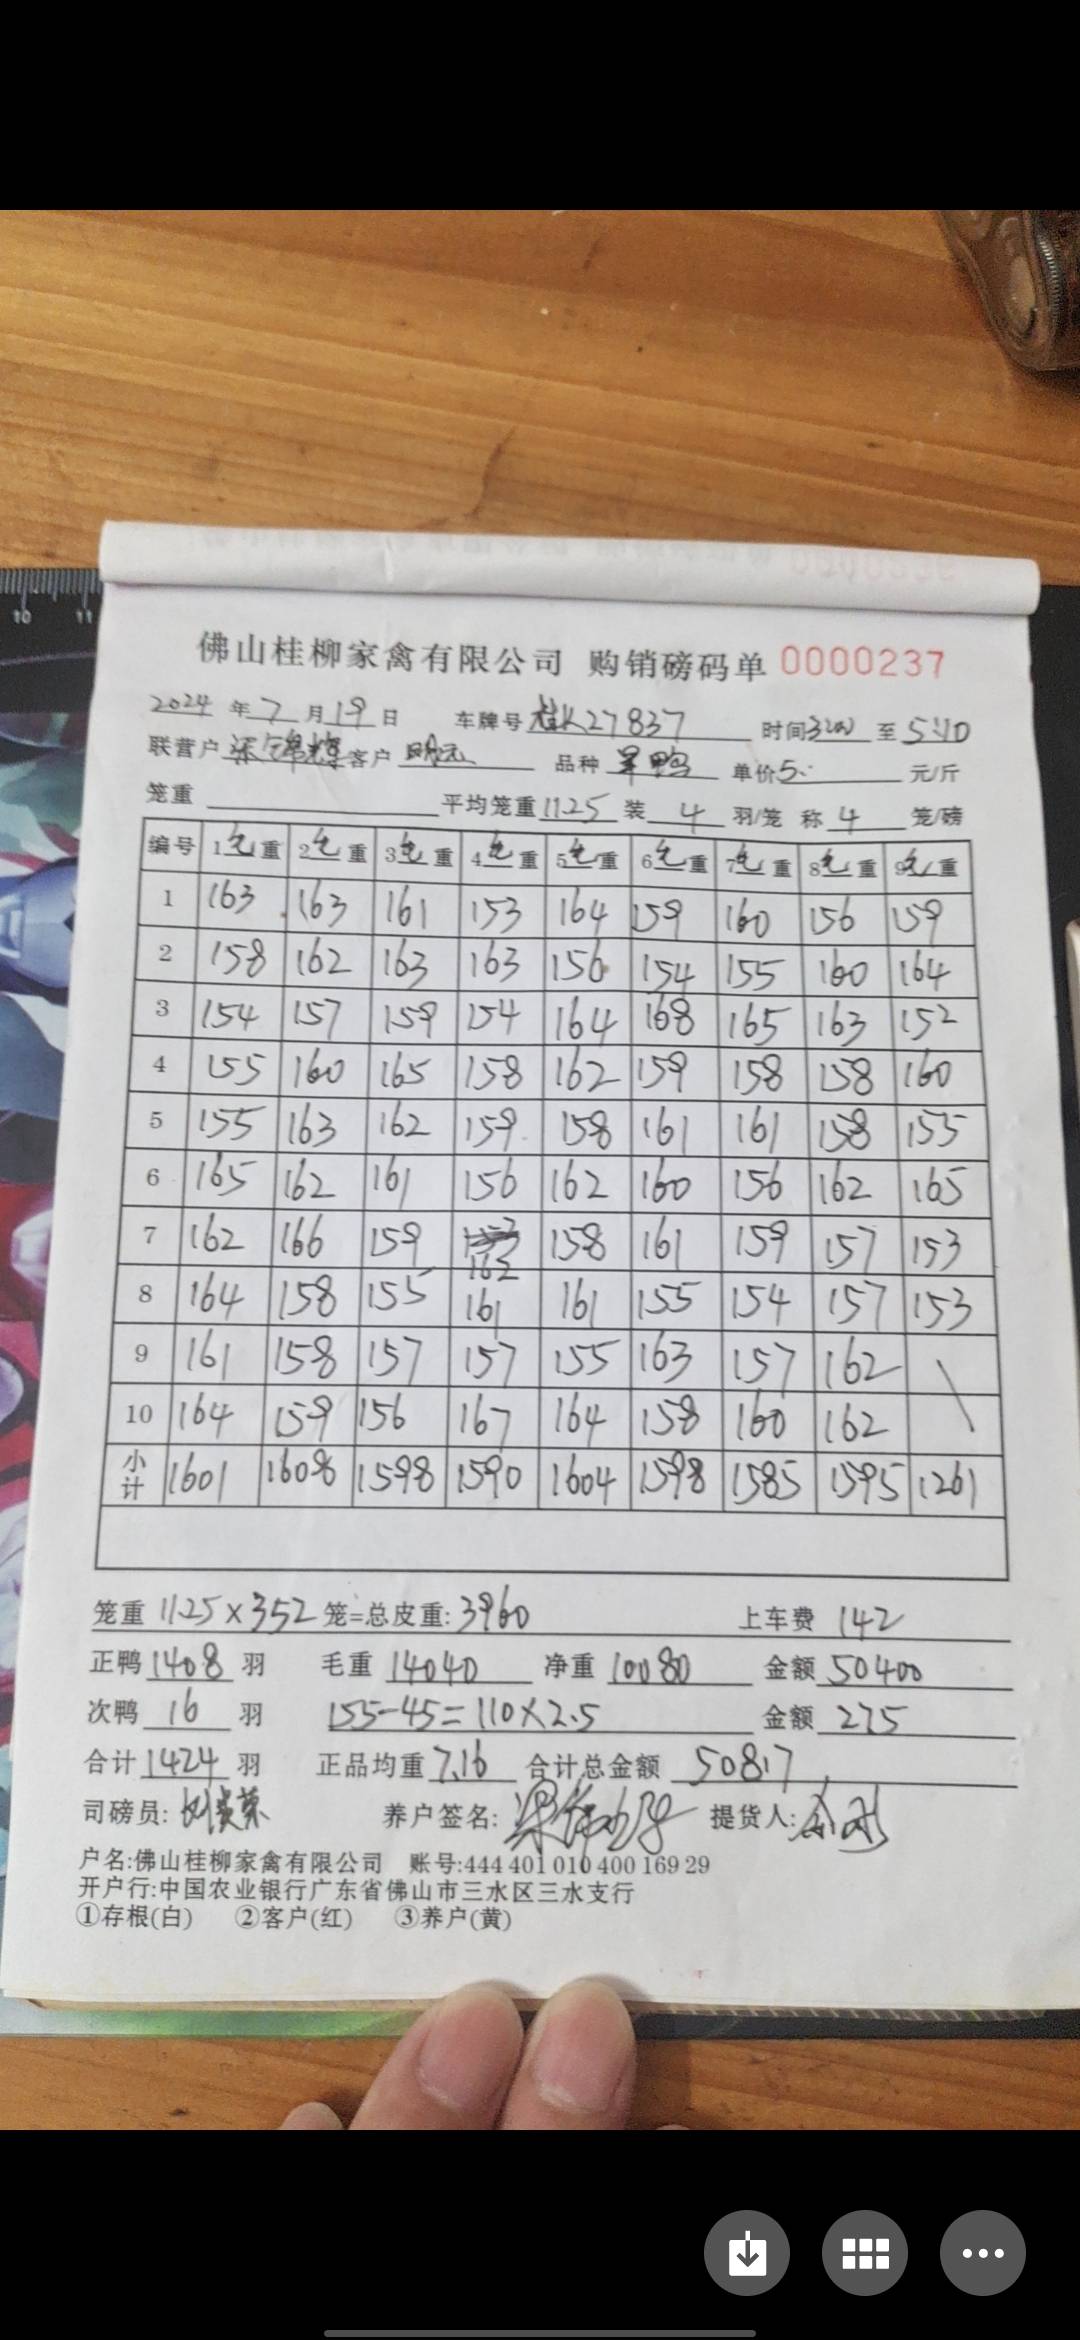 10 11
佛山桂柳家禽有限公司 购销磅码单 0000237
2024 年 7 月 19 日 车牌号 桂K27837 时间 3:00 至 5:10
联营户 梁锦辉 客户 品种 单价 5. 元/斤
笼重 平均笼重 11.25 装 4 羽/笼 称 4 笼/磅
编号 1毛重 2毛重 3毛重 4毛重 5毛重 6毛重 7毛重 8毛重 9毛重
1 163 163 161 153 164 159 160 156 159
2 158 162 163 163 156 154 155 160 164
3 154 157 159 154 164 168 165 163 152
4 155 160 165 158 162 159 158 158 160
5 155 163 162 159 158 161 161 158 155
6 165 162 161 156 162 160 156 162 165
7 162 166 159 162 158 161 159 157 153
8 164 158 155 161 161 155 154 157 153
9 161 158 157 157 155 163 157 162
10 164 159 156 167 164 158 160 162
小计 1601 1608 1598 1590 1604 1598 1585 1595 1261
笼重 11.25×352 笼=总皮重: 3960 上车费 142
正鸭 1408 羽 毛重 14040 净重 10080 金额 50400
次鸭 16 羽 155-45=110×2.5 金额 275
合计 1424 羽 正品均重 7.16 合计总金额 50817
司磅员: 养户签名: 提货人:
户名:佛山桂柳家禽有限公司 账号:444 401 010 400 169 29
开户行:中国农业银行广东省佛山市三水区三水支行
①存根(白) ②客户(红) ③养户(黄)